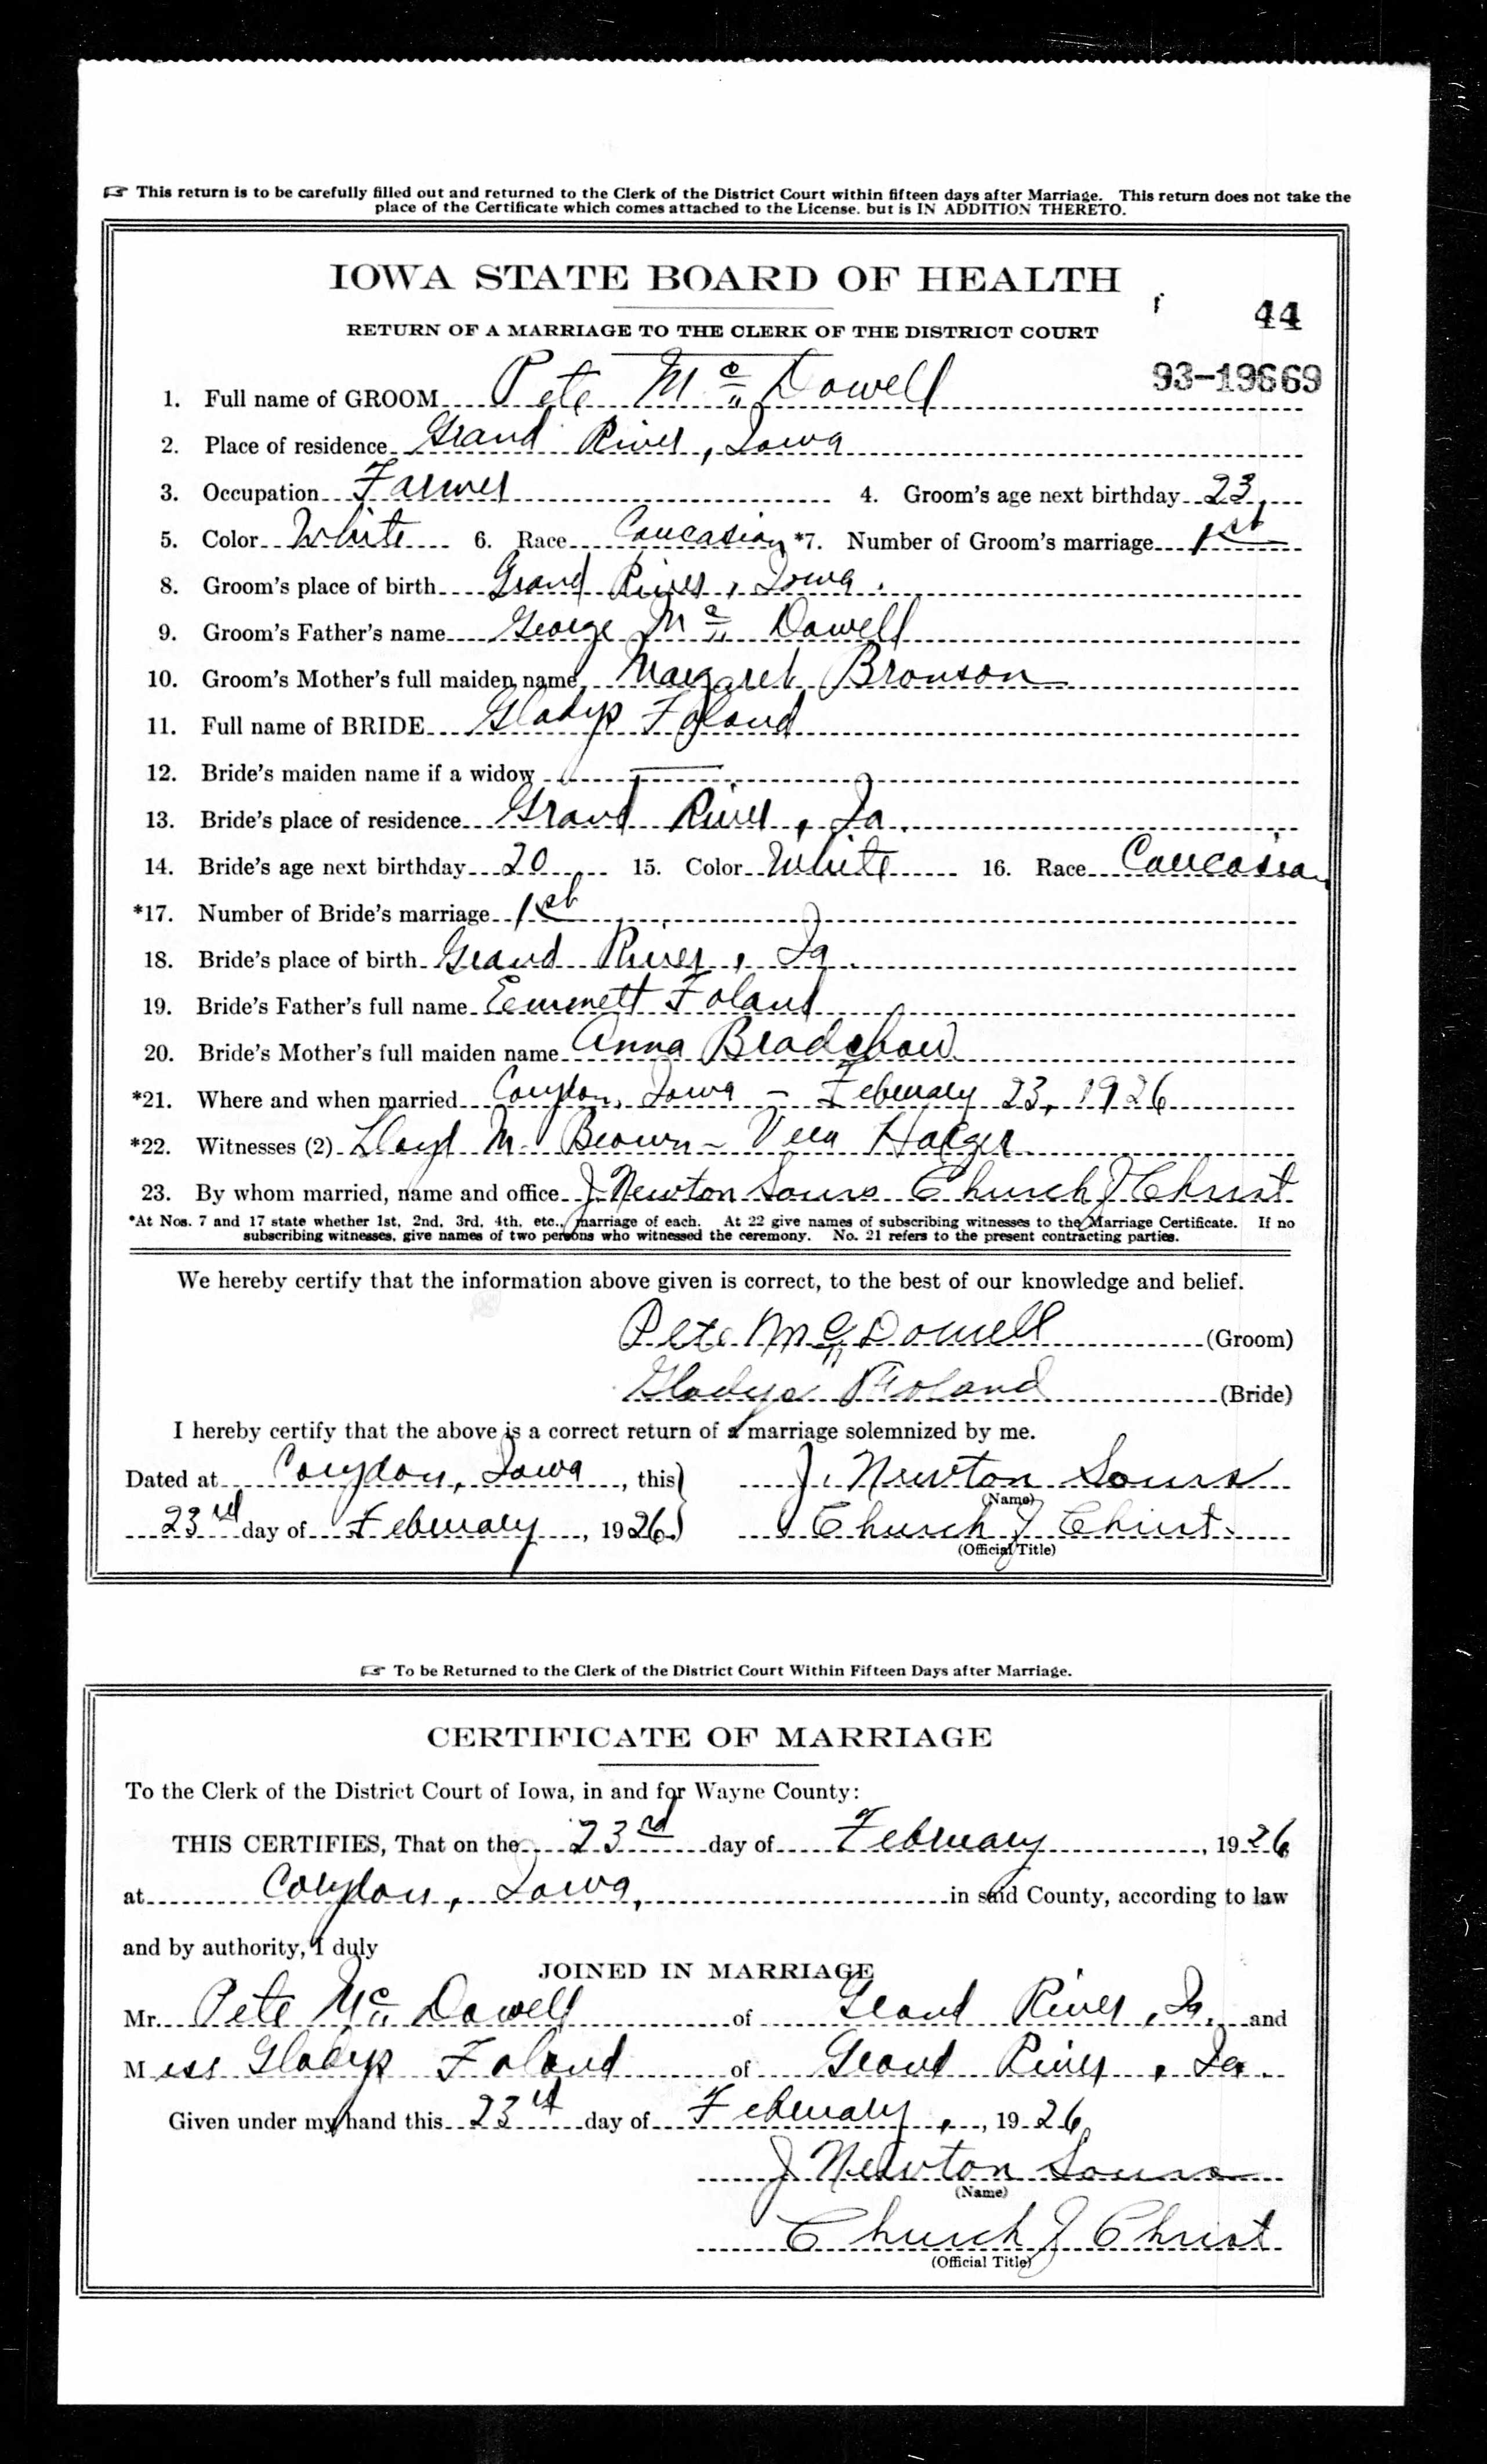 ☞ This return is to be carefully filled out and returned to the Clerk of the District Court within fifteen days after Marriage. This return does not take the
place of the Certificate which comes attached to the License, but is IN ADDITION THERETO.
IOWA STATE BOARD OF HEALTH
44
RETURN OF A MARRIAGE TO THE CLERK OF THE DISTRICT COURT
93-19669
1. Full name of GROOM Pete Mc Dowell
2. Place of residence Grand River, Iowa
3. Occupation Farmer 4. Groom's age next birthday 23
5. Color White 6. Race Caucasian *7. Number of Groom's marriage 1st
8. Groom's place of birth Grand River, Iowa.
9. Groom's Father's name George Mc Dowell
10. Groom's Mother's full maiden name Margaret Bronson
11. Full name of BRIDE Gladys Foland
12. Bride's maiden name if a widow —
13. Bride's place of residence Grand River, Ia.
14. Bride's age next birthday 20 15. Color White 16. Race Caucasian
*17. Number of Bride's marriage 1st
18. Bride's place of birth Grand River, Ia.
19. Bride's Father's full name Emmett Foland
20. Bride's Mother's full maiden name Anna Bradshaw
*21. Where and when married Corydon, Iowa - February 23, 1926
*22. Witnesses (2) Lloyd M. Brown - Vera
23. By whom married, name and office J. Newton Sours Church of Christ
*At Nos. 7 and 17 state whether 1st, 2nd, 3rd, 4th, etc., marriage of each. At 22 give names of subscribing witnesses to the Marriage Certificate. If no
subscribing witnesses, give names of two persons who witnessed the ceremony. No. 21 refers to the present contracting parties.
We hereby certify that the information above given is correct, to the best of our knowledge and belief.
Pete McDowell (Groom)
Gladys Foland (Bride)
I hereby certify that the above is a correct return of a marriage solemnized by me.
Dated at Corydon, Iowa, this J. Newton Sours
(Name)
23rd day of February, 1926. Church of Christ.
(Official Title)
☞ To be Returned to the Clerk of the District Court Within Fifteen Days after Marriage.
CERTIFICATE OF MARRIAGE
To the Clerk of the District Court of Iowa, in and for Wayne County:
THIS CERTIFIES, That on the 23rd day of February, 1926
at Corydon, Iowa, in said County, according to law
and by authority, I duly
JOINED IN MARRIAGE
Mr. Pete Mc Dowell of Grand River, Ia. and
Miss Gladys Foland of Grand River, Ia.
Given under my hand this 23rd day of February, 1926
J Newton Sours
(Name)
Church of Christ
(Official Title)